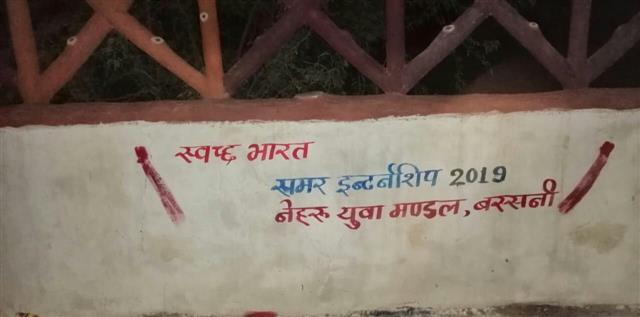 स्वच्छ भारत
समर इन्टर्नशिप 2019
नेहरू युवा मण्डल, बस्सनी